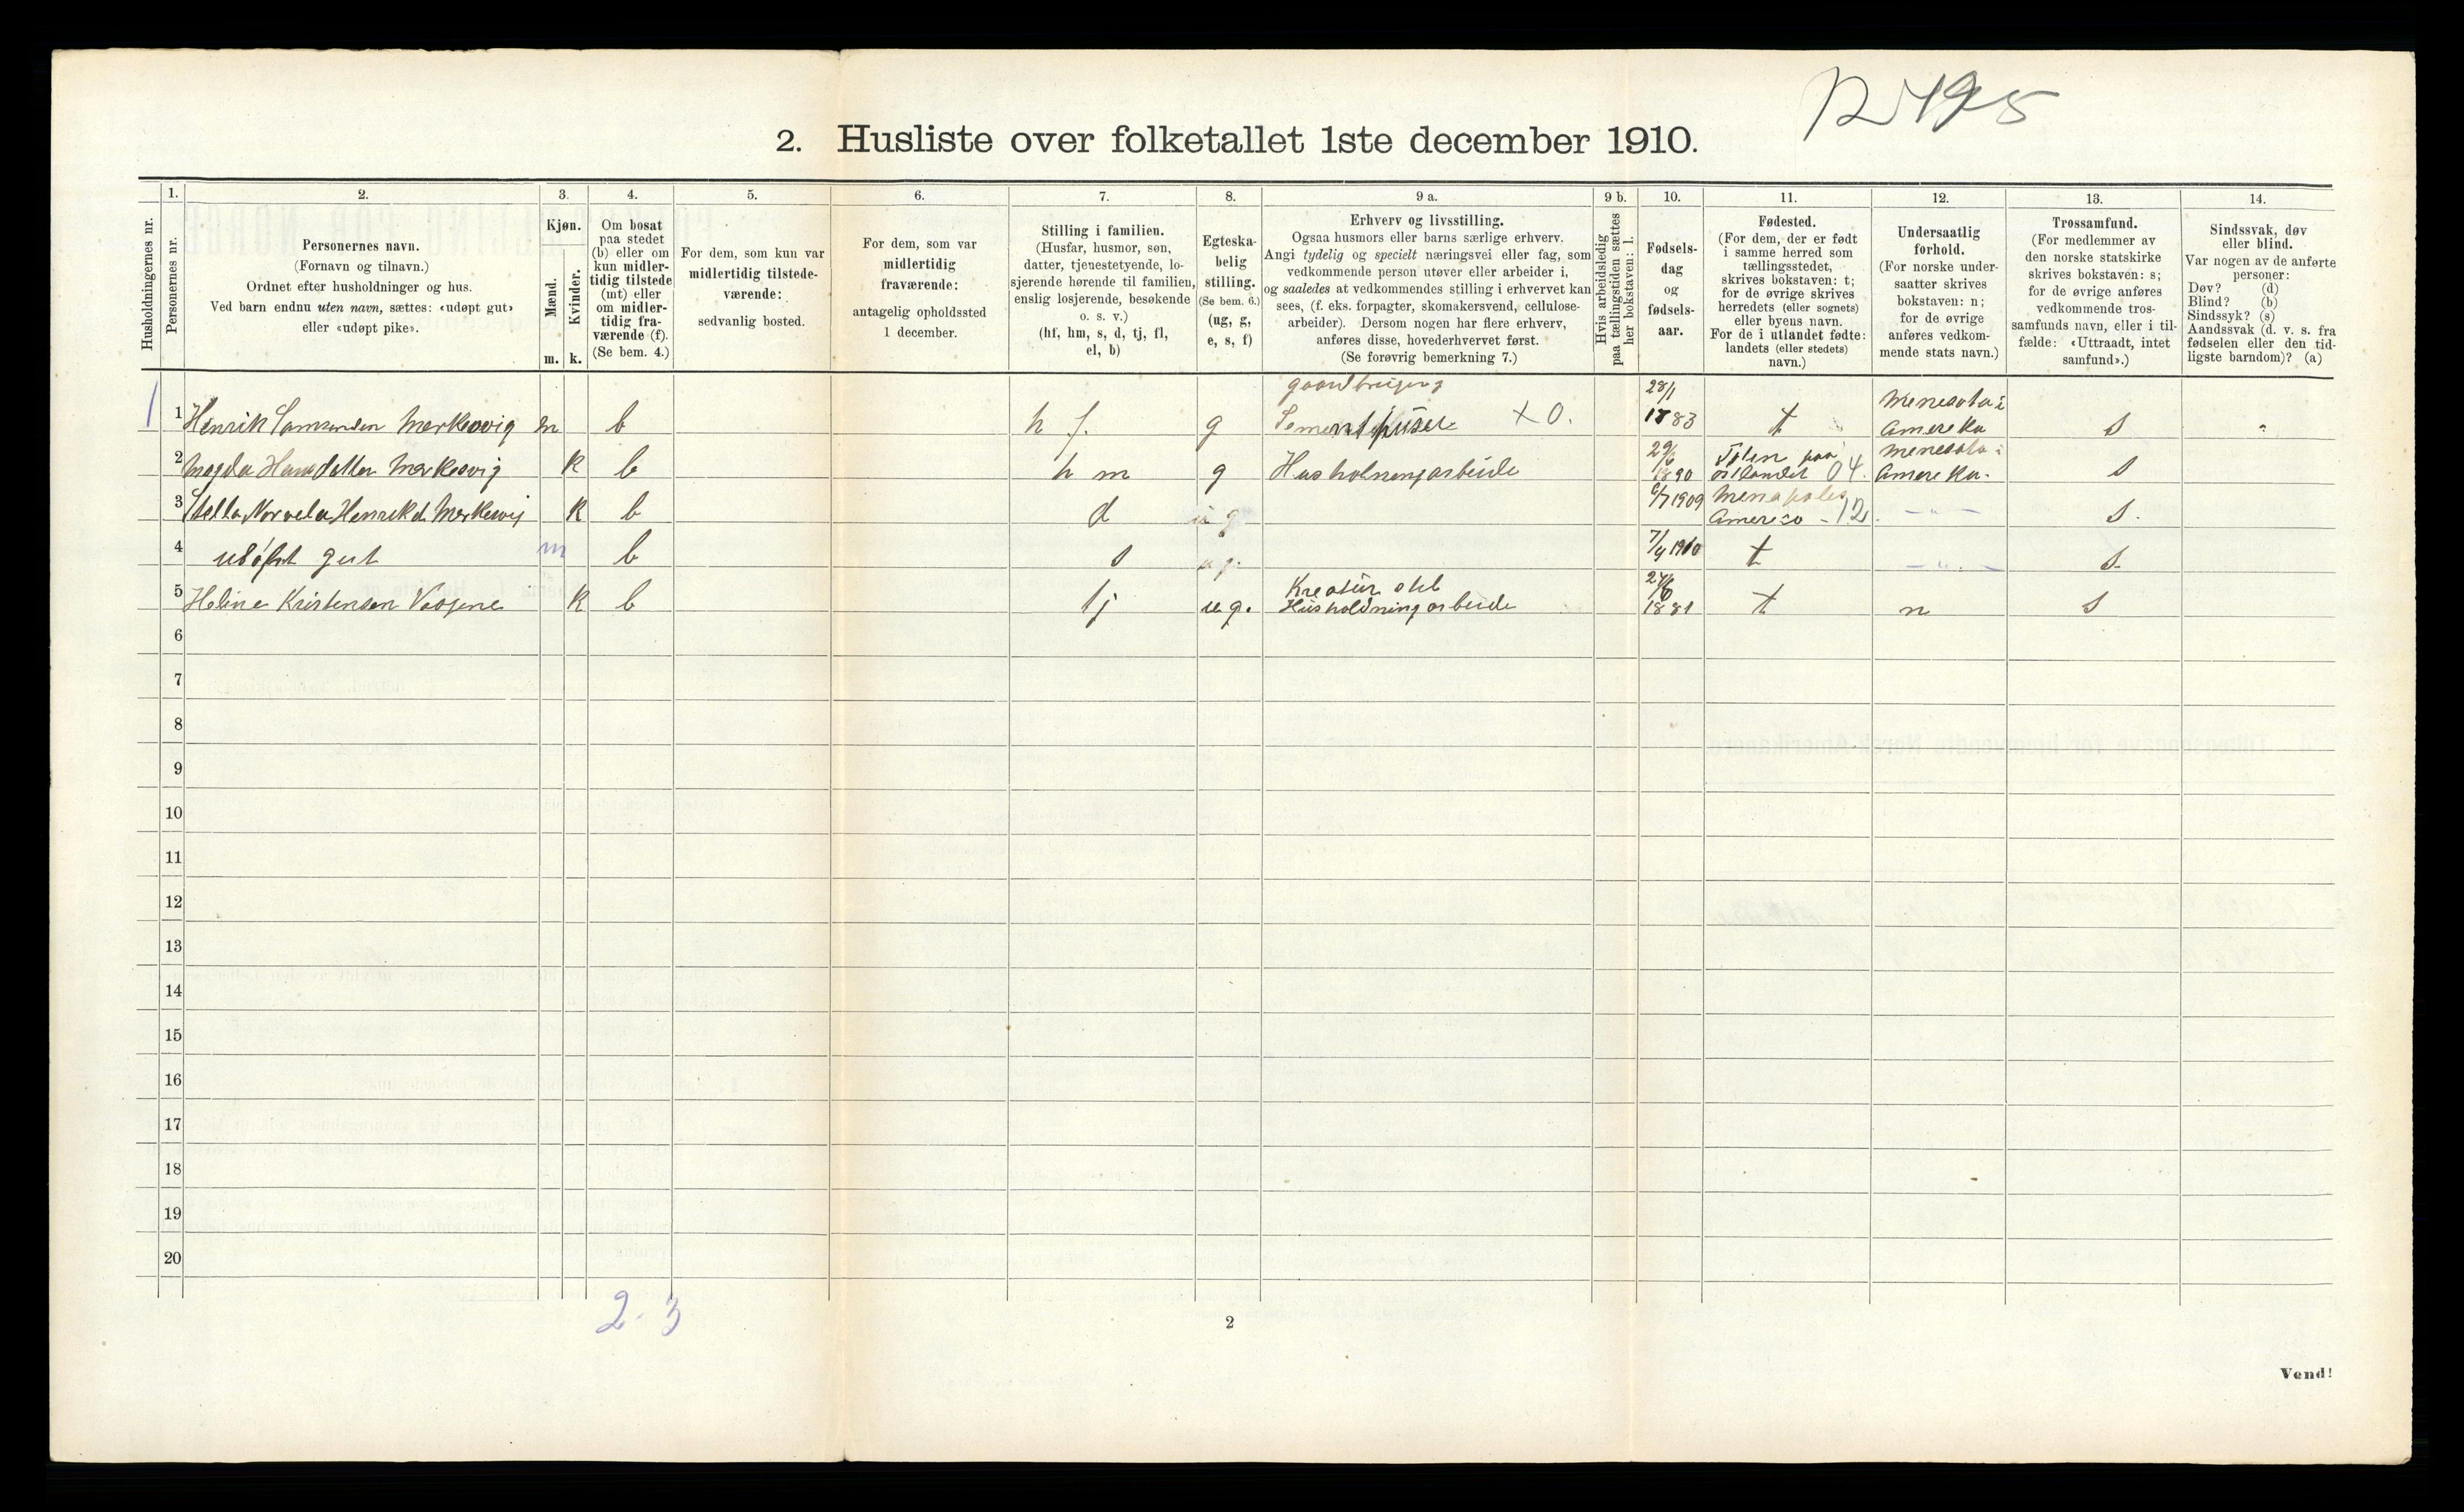 2. Husliste over folketallet 1ste december 1910.
Husholdningernes nr.
1.
Personernes nr.
2.
Personernes navn.
(Fornavn og tilnavn.)
Ordnet efter husholdninger og hus.
Ved barn endnu uten navn, sættes: «udøpt gut»
eller «udøpt pike».
3.
Kjøn.
Mænd.
Kvinder.
m. k.
4.
Om bosat
paa stedet
(b) eller om
kun midler-
tidig tilstede
(mt) eller
om midler-
tidig fra-
værende (f).
(Se bem. 4.)
5.
For dem, som kun var
midlertidig tilstede-
værende:
sedvanlig bosted.
6.
For dem, som var
midlertidig
fraværende:
antagelig opholdssted
1 december.
7.
Stilling i familien.
(Husfar, husmor, søn,
datter, tjenestetyende, lo-
sjerende hørende til familien,
enslig losjerende, besøkende
o. s. v.)
(hf, hm, s, d, tj, fl,
el, b)
8.
Egteska-
belig
stilling.
(Se bem. 6.)
(ug, g,
e, s, f)
9 a.
Erhverv og livsstilling.
Ogsaa husmors eller barns særlige erhverv.
Angi tydelig og specielt næringsvei eller fag, som
vedkommende person utøver eller arbeider i,
og saaledes at vedkommendes stilling i erhvervet kan
sees, (f. eks. forpagter, skomakersvend, cellulose-
arbeider). Dersom nogen har flere erhverv,
anføres disse, hovederhvervet først.
(Se forøvrig bemerkning 7.)
9 b.
Hvis arbeidsledig
paa tællingstiden sættes
her bokstaven: l.
10.
Fødsels-
dag
og
fødsels-
aar.
11.
Fødested.
(For dem, der er født
i samme herred som
tællingsstedet,
skrives bokstaven: t;
for de øvrige skrives
herredets (eller sognets)
eller byens navn.
For de i utlandet fødte:
landets (eller stedets)
navn.)
12.
Undersaatlig
forhold.
(For norske under-
saatter skrives
bokstaven: n;
for de øvrige
anføres vedkom-
mende stats navn.)
13.
Trossamfund.
(For medlemmer av
den norske statskirke
skrives bokstaven: s;
for de øvrige anføres
vedkommende tros-
samfunds navn, eller i til-
fælde: «Uttraadt, intet
samfund».)
14.
Sindssvak, døv
eller blind.
Var nogen av de anførte
personer:
Døv? (d)
Blind? (b)
Sindssyk? (s)
Aandssvak (d. v. s. fra
fødselen eller den tid-
ligste barndom)? (a)
1 1 Henrik Samsonsen Merkesvig m b h f. g Sement X 0. 28/1 1883 t Menesota i Amereka s
2 Magda Hansdatter Merkesvig k b h m g Husholningarbeide 29/6 1890 paa østlandet 04. Menesota i Amereka. s
3 Stella Norvela Henrikd Merkesvig k b d u g 6/7 1909 Menapoles Amerco - 12. - " - s.
4 udøpt gut m b s u g. 7/4 1910 t - " - s.
5 Heline Kristensen Vaagene k b tj u g. Kreatur stel Husholdningarbeide 24/6 1881 t n s
6
7
8
9
10
11
12
13
14
15
16
17
18
19
20
2. 3
2
Vend!